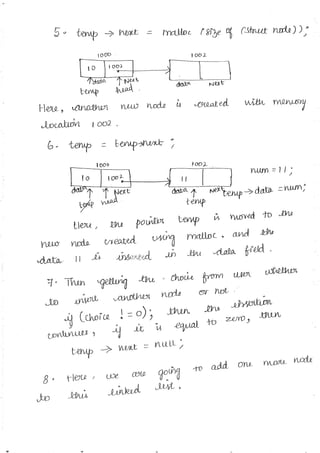 5. temp → next = malloc (size of (struct node));
1000 1002
10 1002
data Next data Next
temp head
Here, another new node is created with memory
location 1002.
6. temp = temp→next ;
1000 1002
10 1002 11 num = 11 ;
data Next data Next temp → data = num;
temp head temp
Here, the pointer temp is moved to the
new node created using malloc. and the
data 11 is inserted in the data field.
7. Then getting the choice from user whether
to insert another node or not.
if (choice ! = 0); then the insertion
continues, if it is equal to zero, then
temp → next = null;
8. Here, we are going to add one more node
to this linked list.